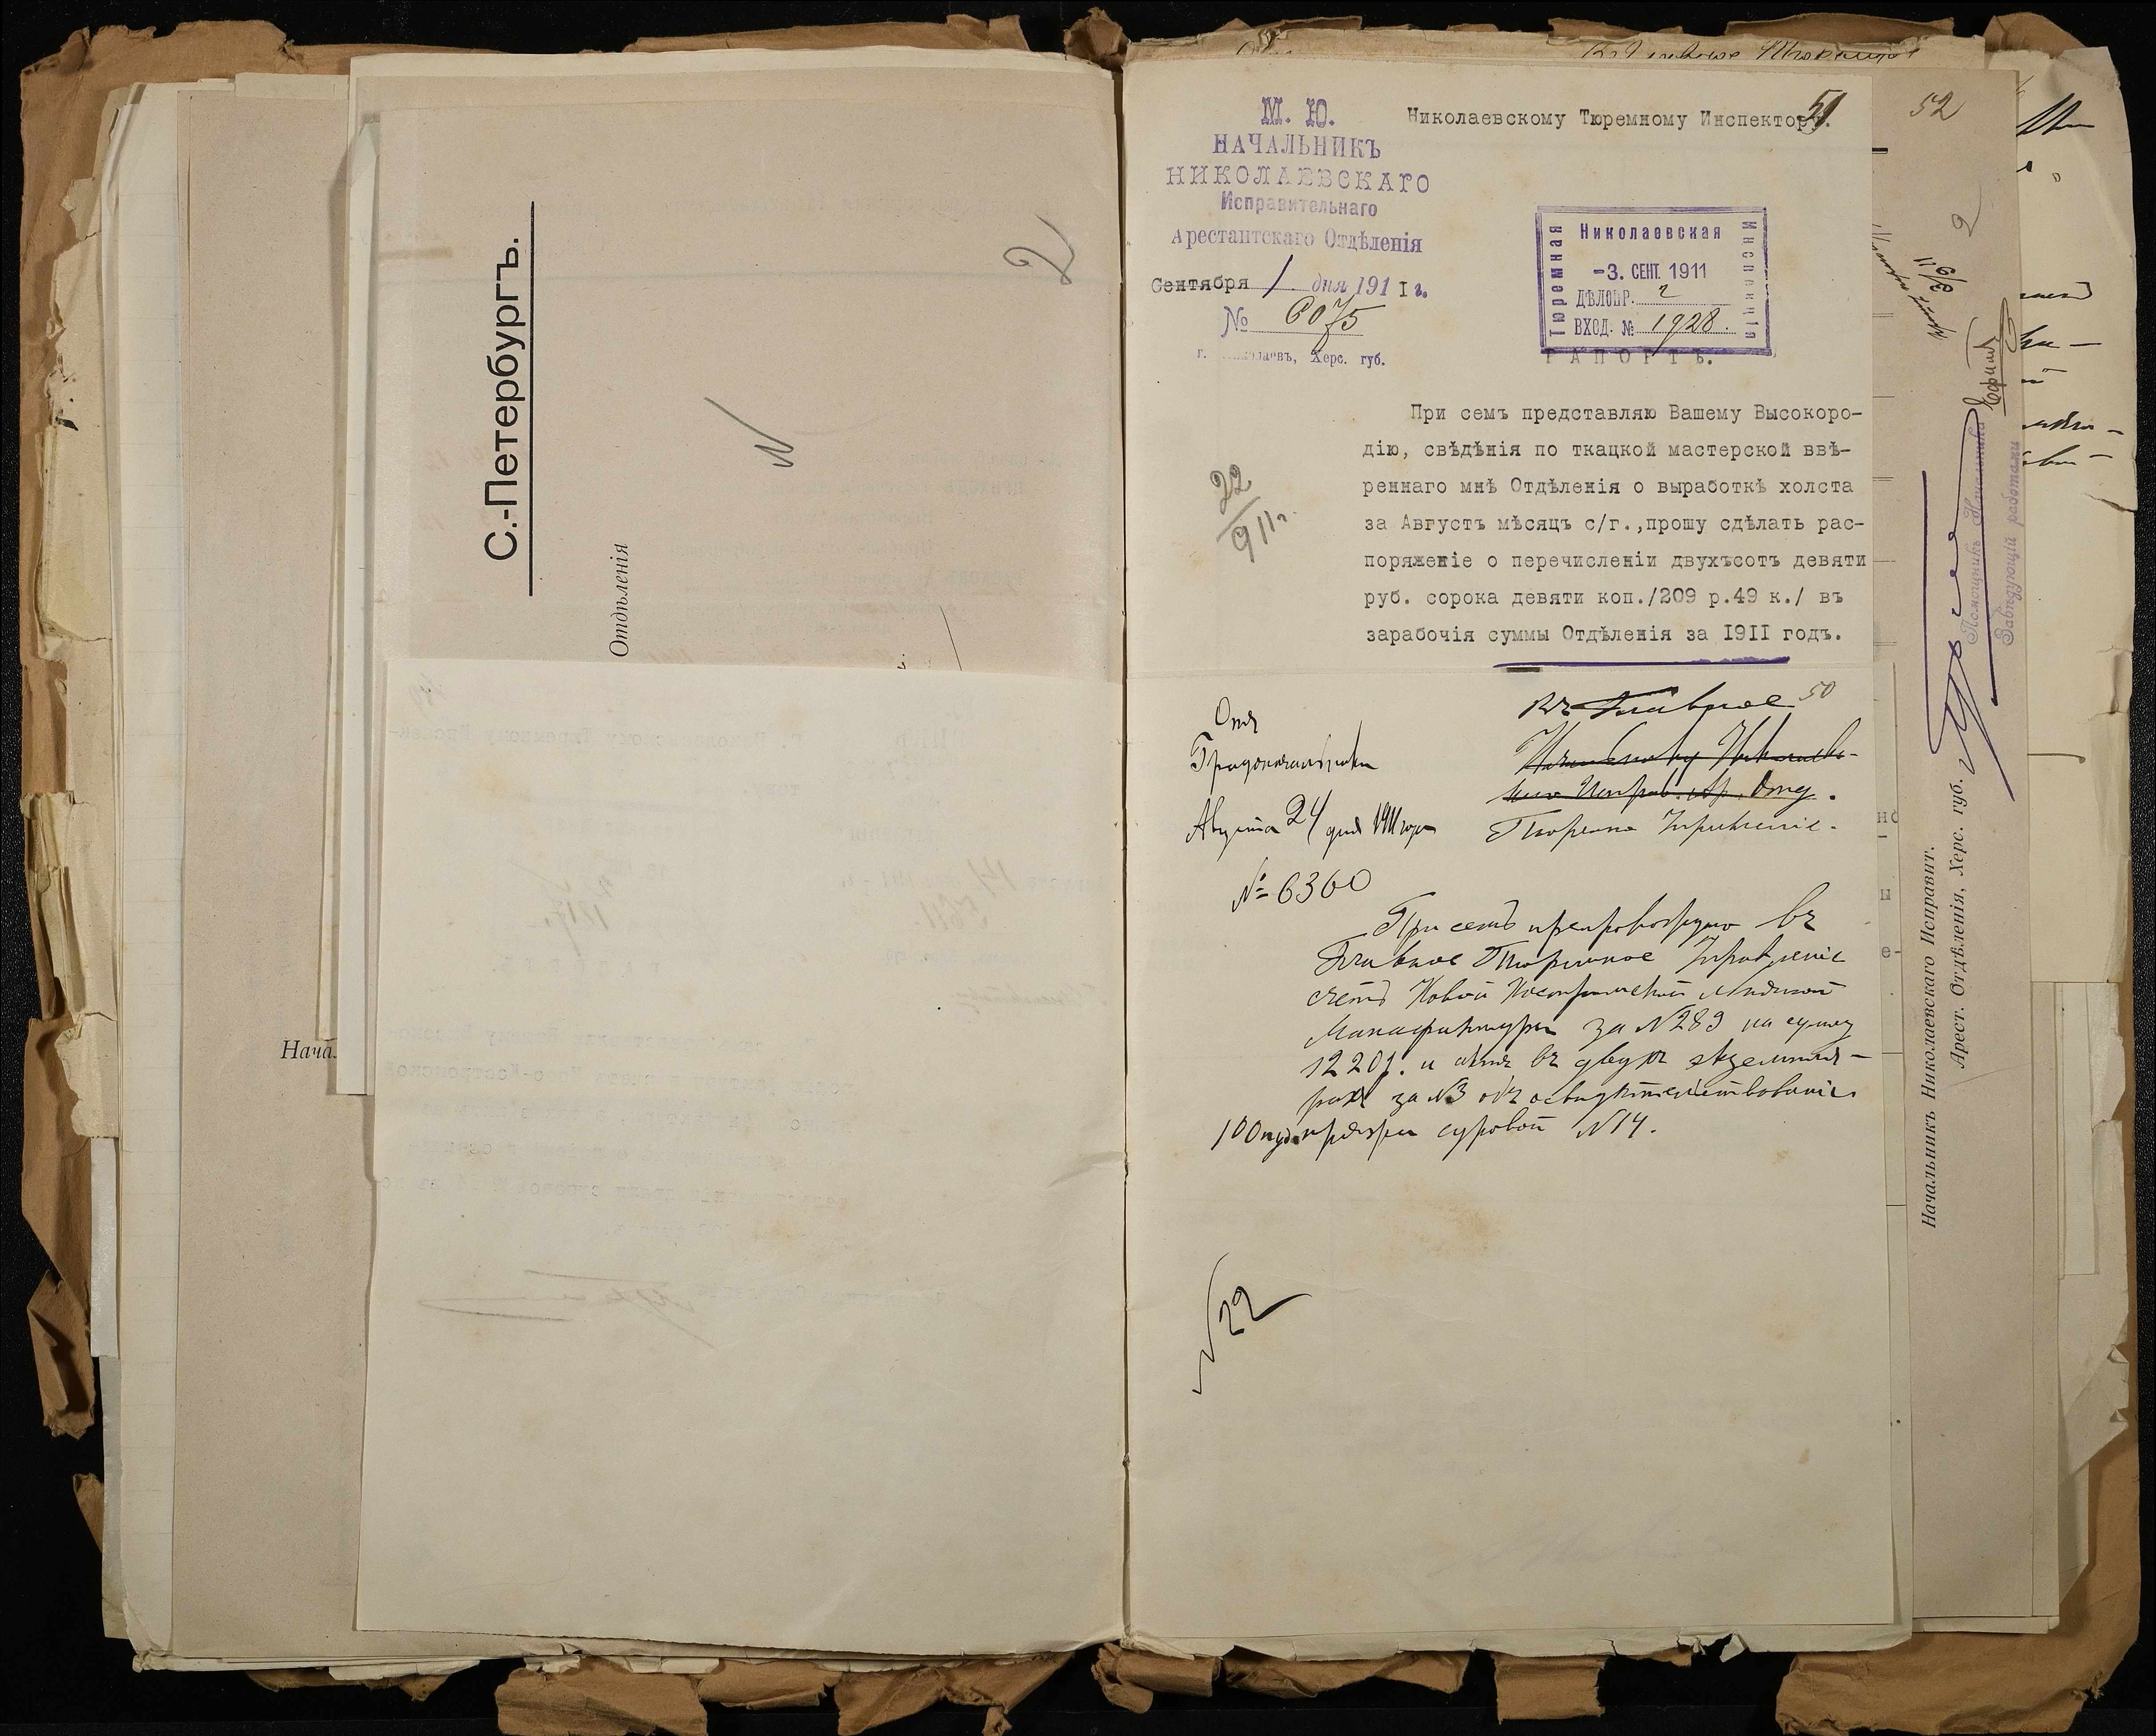 С.-Петербургъ.
Отдѣленія
Нача
2
51
М. Ю.
НАЧАЛЬНИКЪ
НИКОЛАЕВСКАГО
Исправительнаго
Арестантскаго Отдѣленія
Сентября 1 дня 1911 г.
№ 6075
г. Николаевъ, Херс. губ.
Николаевскому Тюремному Инспектору.
Николаевская
Тюремная
Инспекція
-3. СЕНТ. 1911
ДѢЛОПР. 2
ВХОД. № 1928.
РАПОРТЪ.
При семъ представляю Вашему Высокоро-
дію, свѣдѣнія по ткацкой мастерской ввѣ-
реннаго мнѣ Отдѣленія о выработкѣ холста
за Августъ мѣсяцъ с/г.,прошу сдѣлать рас-
поряженіе о перечисленіи двухъсотъ девяти
руб. сорока девяти коп./209 р.49 к./ въ
зарабочія суммы Отдѣленія за I9II годъ.
22
9 11 г.
50
Отъ
Градоначальника
Августа 24 дня 1911 года
№ 6360
Въ Главное
Начальнику Николаев-
Исправ. Ар. Отд.
Тюремное Управленіе.
При семъ препровождаю въ
Главное Тюремное Управленіе
счетъ Новой Костромской Льняной
Мануфактуры за №289 на сумму
1220 р. и актъ въ двухъ экземпля-
рахъ за №3 объ освидѣтельствованіи
100 пуд. пряжи суровой №14.
№22
52
2
Помощникъ Начальника
Завѣдующій работами
Начальникъ Николаевскаго Исправит.
Арест. Отдѣленія, Херс. губ.